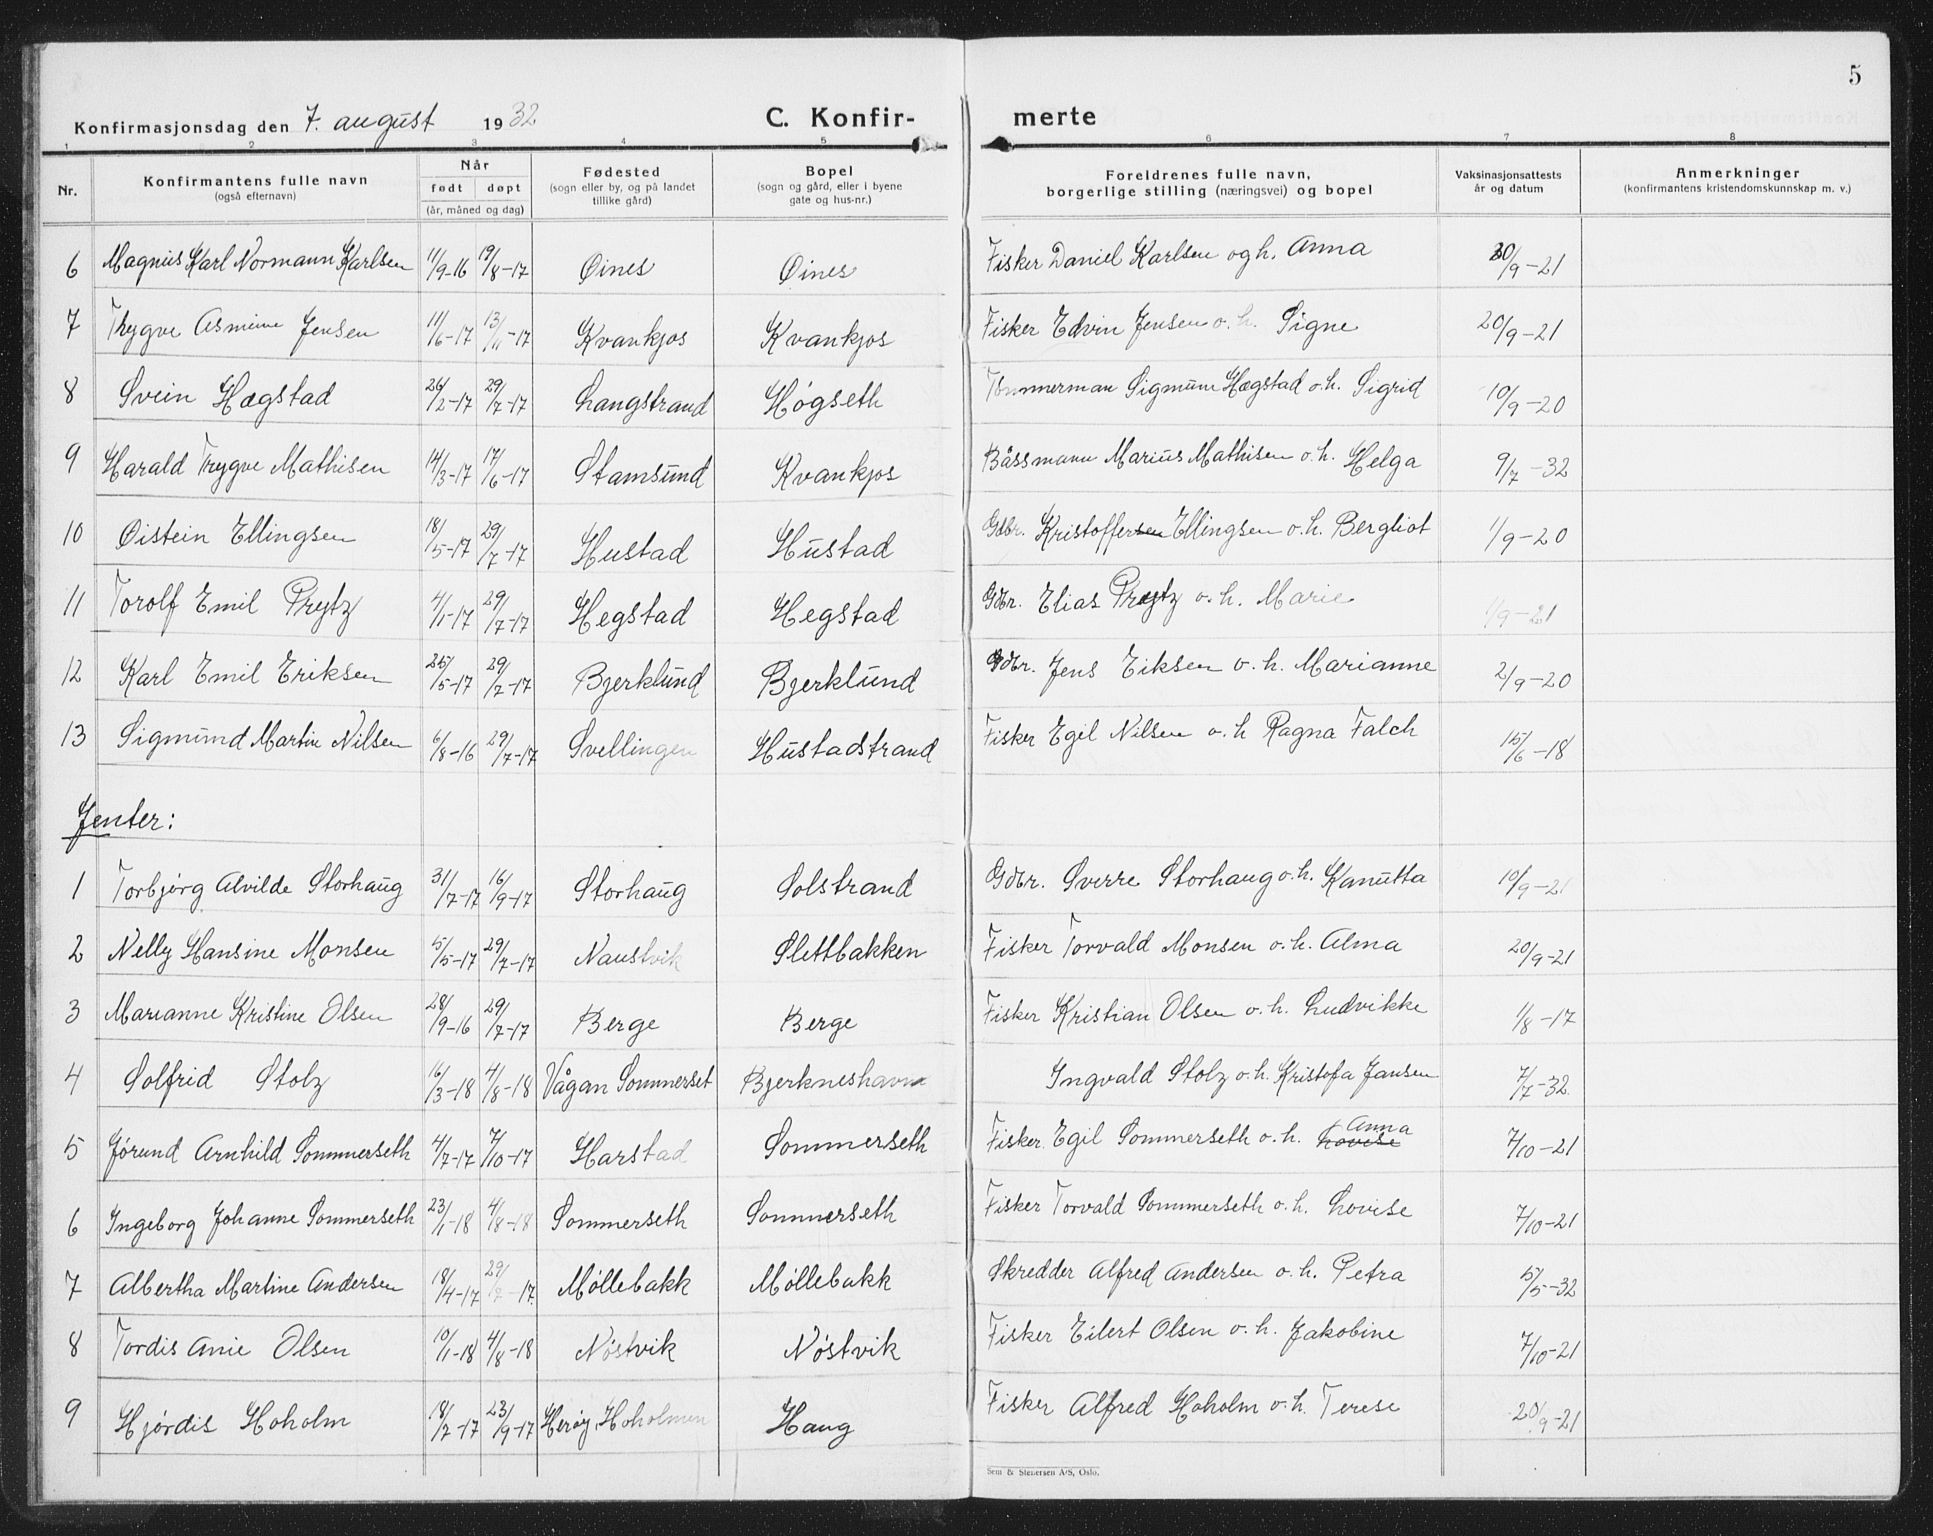 5
Konfirmasjonsdag den 7. august 1932 C. Konfirmerte
1 2 3 4 5 6 7 8
Nr. Konfirmantens fulle navn (også efternavn) Når født døpt (år, måned og dag) Fødested (sogn eller by, og på landet tillike gård) Bopel (sogn og gård, eller i byene gate og hus-nr.) Foreldrenes fulle navn, borgerlige stilling (næringsvei) og bopel Vaksinasjonsattests år og datum Anmerkninger (konfirmantens kristendomskunnskap m. v.)
6 Magnus Karl Normann Karlsen 11/9-16 19/8-17 Øines Øines Fisker Daniel Karlsen og h. Anna 30/9-21
7 Thygve Asmine Jensen 11/6-17 13/11-17 Kvankjos Kvankjos Fisker Edvin Jensen o. h. Signe 20/9-21
8 Svein Hægstad 26/2-17 29/7-17 Langstrand Høgseth Tømmerman Sigmund Hægstad o.h. Sigrid 10/9-20
9 Harald Trygve Mathisen 14/3-17 17/6-17 Stamsund Kvankjos Båssmann Marius Mathisen o.h. Helga 9/7-32
10 Øistein Ellingsen 18/5-17 29/7-17 Hustad Hustad Gdbr. Kristoffersen Ellingsen o.h. Bergliot 1/9-20
11 Torolf Emil Prytz 4/1-17 29/7-17 Hegstad Hegstad Gdbr. Elias Prytz o.h. Marie 1/9-21
12 Karl Emil Eriksen 25/5-17 29/7-17 Bjerklund Bjerklund Gdbr. Jens Eiksen o.h. Marianne 2/9-20
13 Sigmund Martin Nilsen 6/8-16 29/7-17 Svellingen Hustadstrand Fisker Egil Nilsen o.h Ragna Falch 15/6-18
Jenter:
1 Torbjørg Alvilde Storhaug 31/7-17 16/9-17 Storhaug Solstrand Gdbr. Sverre Storhaug o.h. Kanutta 10/9-21
2 Nelly Hansine Monsen 5/5-17 29/7-17 Naustvik Slettbakken Fisker Torvald Monsen o.h. Alma 20/9-21
3 Marianne Kristine Olsen 28/9-16 29/7-17 Berge Berge Fisker Kristian Olsen o.h. Ludvikke 1/8-17
4 Solfrid Stolz 16/3-18 4/8-18 Vågan Sommerset Bjerkneshavn Ingvald Stolz o.h. Kristofa Jansen 7/7-32
5 Jørund Arnhild Sommerseth 4/7-17 7/10-17 Harstad Sommerseth Fisker Egil Sommerseth o.h. Lovise Anna 7/10-21
6 Ingeborg Johanne Sommerseth 23/1-18 4/8-18 Sommerseth Sommerseth Fisker Torvald Sommerseth o.h. Lovise 7/10-21
7 Albertha Martine Andersen 18/4-17 29/7-17 Møllebakk Møllebakk Skredder Alfred Andersen o.h. Petra 5/5-32
8 Tordis Anie Olsen 10/1-18 4/8-18 Nøstvik Nøstvik Fisker Eilert Olsen o.h. Jakobine 7/10-21
9 Hjørdis Hoholm 18/2-17 23/9-17 Herøy, Hoholmen Haug Fisker Alfred Hoholm o.h. Terese 20/9-21
Sem & Stenersen A/S, Oslo.